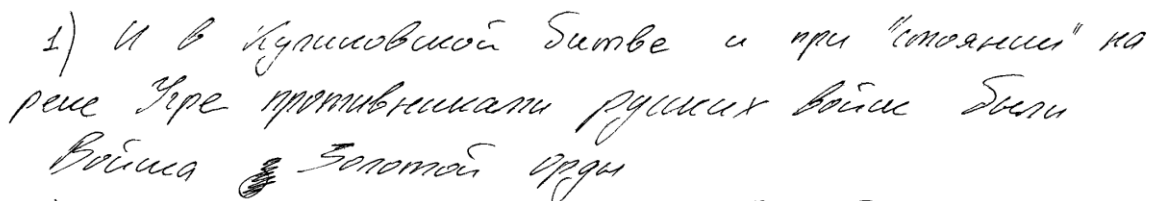 1) И в Куликовской битве и при "стоянии" на
реке Угре противниками русских войск были
Войска Золотой орды